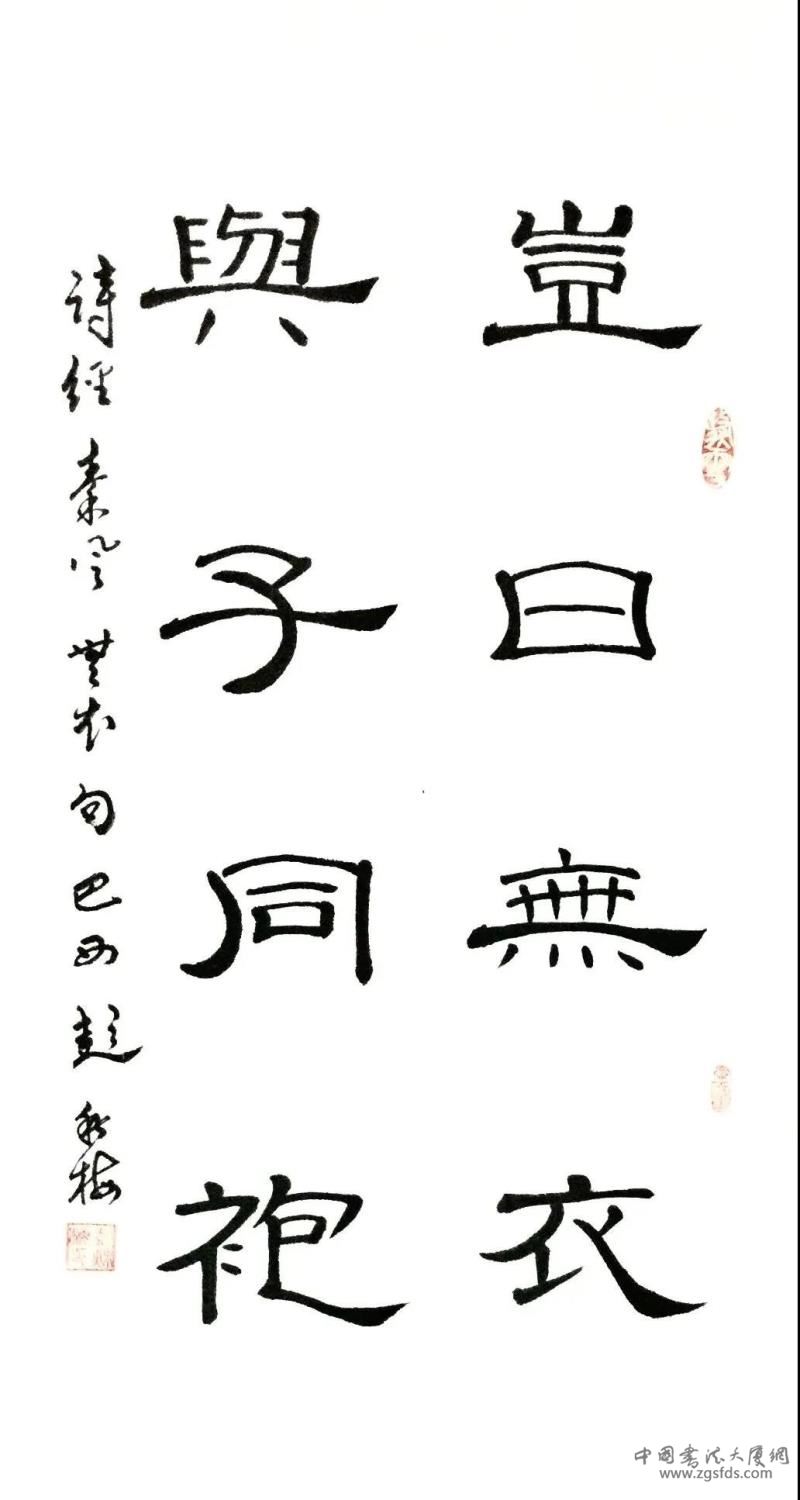 豈曰無衣
與子同袍
詩經秦風無衣句巴西彭秋梅
中国書法大厦網
www.zgsfds.com